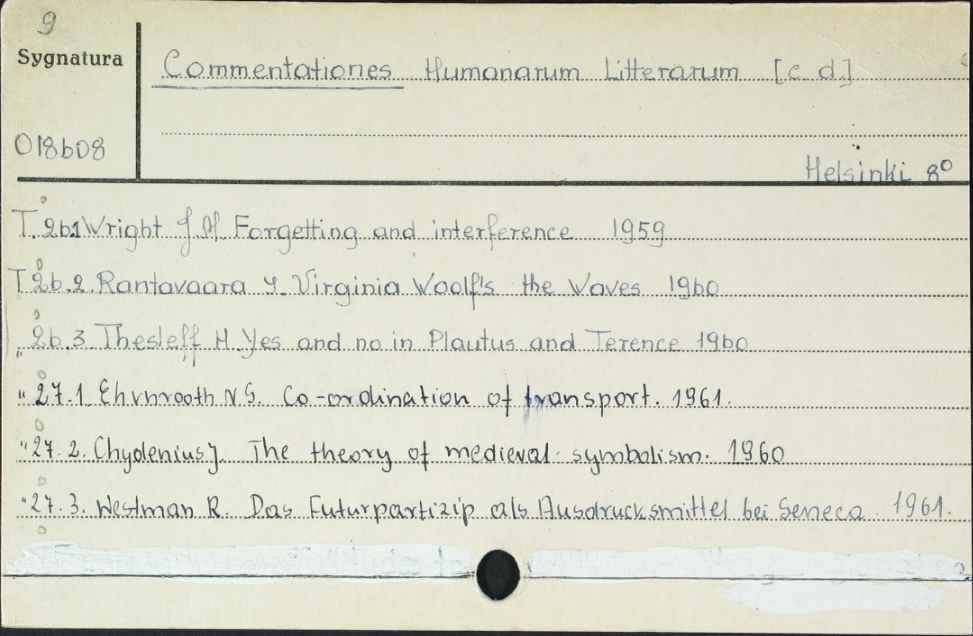 9
Sygnatura
Commentationes Humanarum Litterarum [c.d.]
018608
Helsinki 8°
T. 26.1 Wright J.M. Forgetting and interference 1959
T 26.2. Rantavaara I. Virginia Woolf's the Waves 1960
" 26.3 Thesleff H. Yes and no in Plautus and Terence 1960
" 27.1 Ehrnrooth N.G. Co-ordination of transport. 1961.
" 27.2. Chydenius J. The theory of medieval symbolism. 1960
" 27.3. Westman R. Das Futurpartizip als Ausdrucksmittel bei Seneca 1961.